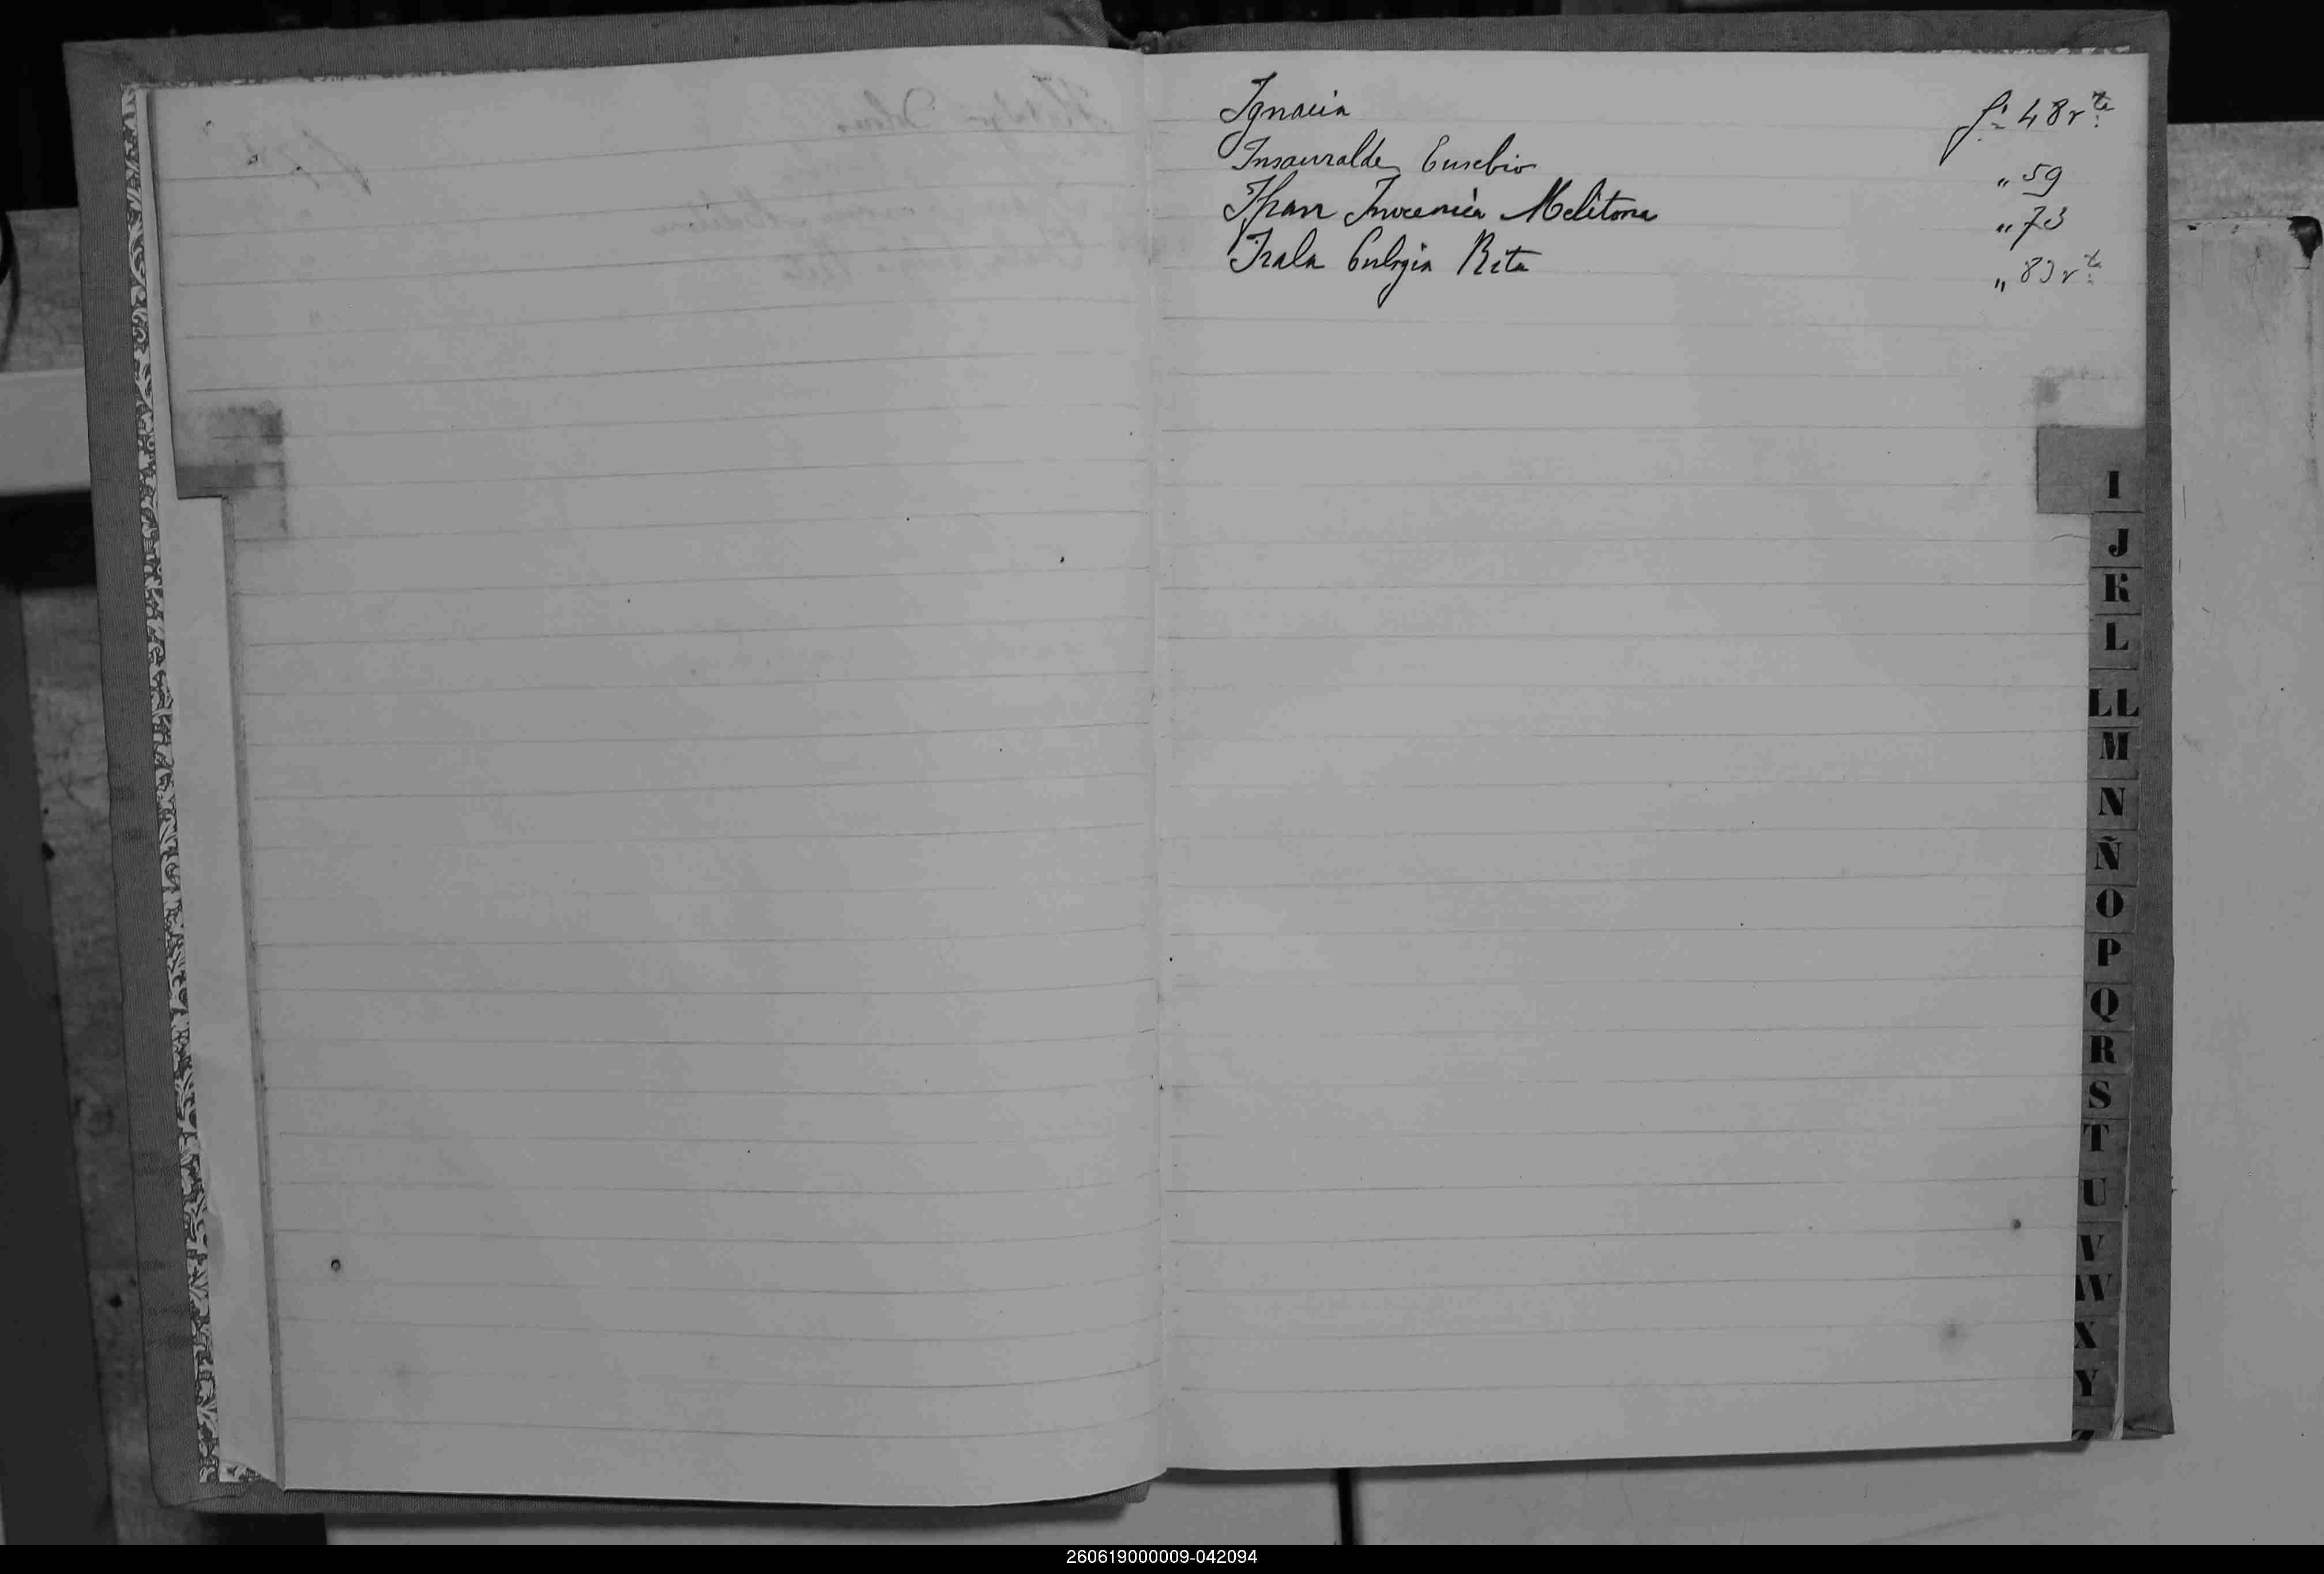 Ignacia f: 48 vta
Insauralde Eusebio " 59
Ifran Inocencia Melitona " 73
Irala Eulogia Rita " 83 vta
I
J
K
L
LL
M
N
Ñ
O
P
Q
R
S
T
U
V
W
X
Y
Z
260619000009-042094